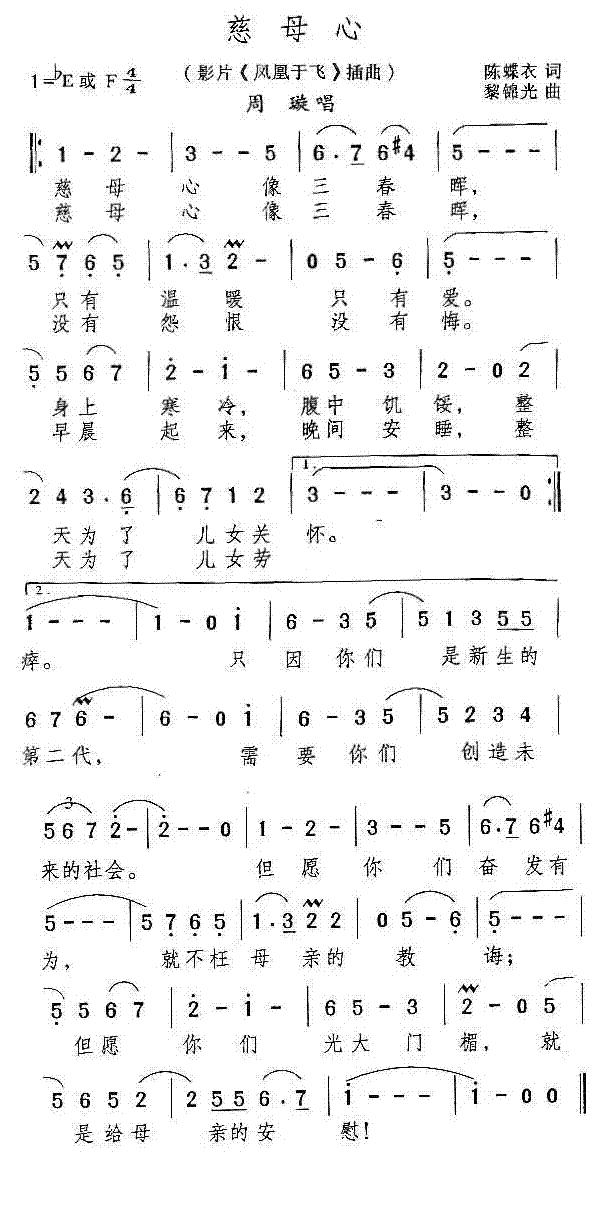 慈母心
1=♭E或F 4/4 (影片《凤凰于飞》插曲) 陈蝶衣 词
周 璇唱 黎锦光 曲
‖: 1 - 2 - | 3 - - 5 | 6 . 7 6 #4 | 5 - - - |
慈 母 心 像 三 春 晖,
慈 母 心 像 三 春 晖,
5 7 6 5 | 1 . 3 2 - | 0 5 - 6 | 5 - - - |
只有 温 暖 只 有 爱。
没有 怨 恨 没 有 悔。
5 5 6 7 | 2 - 1 - | 6 5 - 3 | 2 - 0 2 |
身上 寒 冷, 腹中 饥 馁, 整
早晨 起 来, 晚间 安 睡, 整
2 4 3 . 6 | 6 7 1 2 | 1. 3 - - - | 3 - - 0 :‖
天为了 儿女关 怀。
天为了 儿女劳
2. 1 - - - | 1 - 0 1 | 6 - 3 5 | 5 1 3 5 5 |
瘁。 只 因 你们 是新生的
6 7 6 - | 6 - 0 1 | 6 - 3 5 | 5 2 3 4 |
第二代, 需 要 你们 创造未
3 5 6 7 2 - | 2 - - 0 | 1 - 2 - | 3 - - 5 | 6 . 7 6 #4 |
来的社会。 但 愿 你 们 奋 发有
5 - - - | 5 7 6 5 | 1 . 3 2 2 | 0 5 - 6 | 5 - - - |
为, 就不枉 母 亲的 教 诲;
5 5 6 7 | 2 - 1 - | 6 5 - 3 | 2 - 0 5 |
但愿 你 们 光大 门 楣, 就
5 6 5 2 | 2 5 5 6 . 7 | 1 - - - | 1 - - 0 ‖
是给母 亲的安 慰!